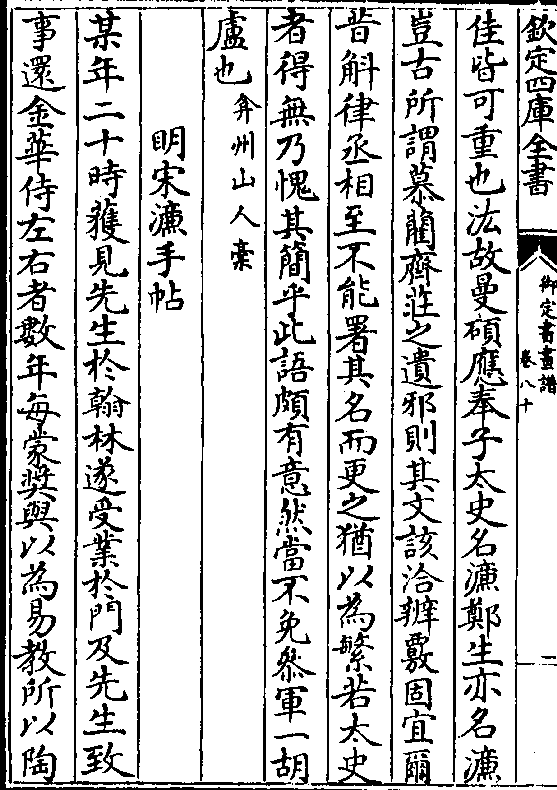 欽定四庫全書
御定書畫譜
卷八十
佳皆可重也泫故曼碩應奉子太史名濂鄭生亦名濂
豈古所謂慕藺齊莊之遺邪則其文該洽辦覈固宜爾
昔斛律丞相至不能署其名而更之猶以為繁若太史
者得無乃愧其簡乎此語頗有意然當不免叅軍一胡
盧也弇州山人槀
明宋濂手帖
某年二十時獲見先生於翰林遂受業於門及先生致
事還金華侍左右者數年每蒙奬與以為易教所以陶